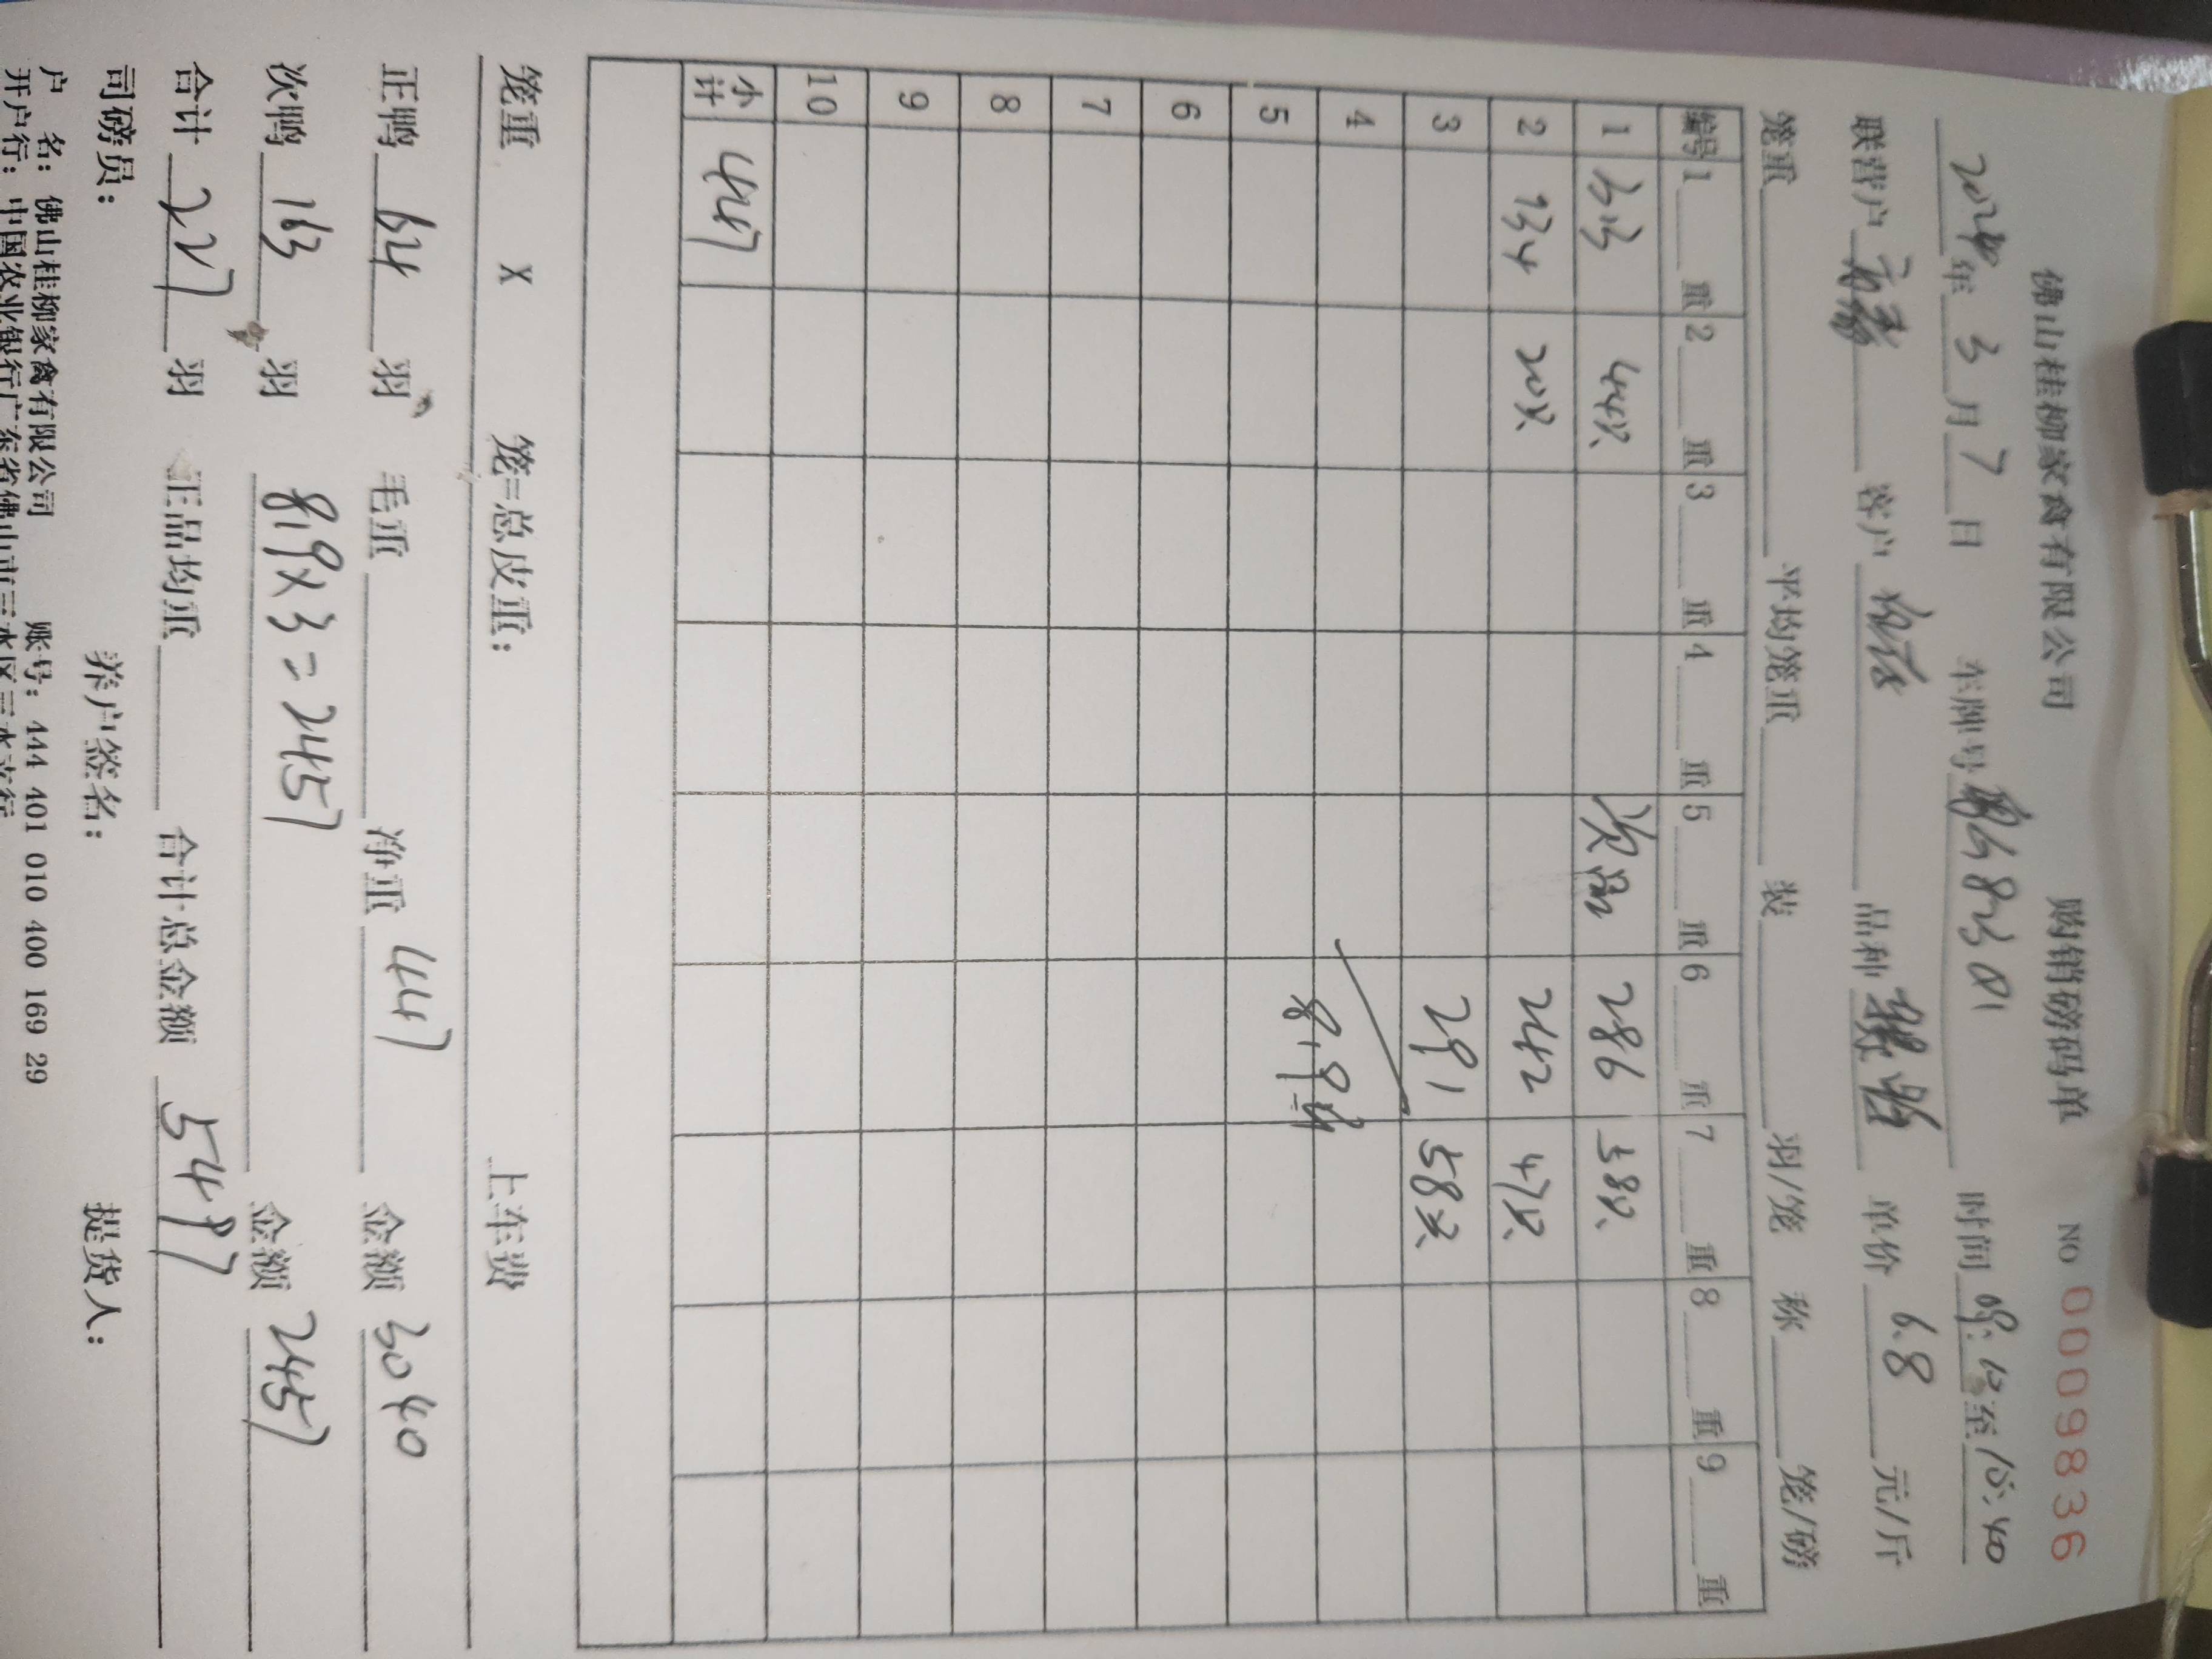 佛山桂柳家禽有限公司 购销磅码单 NO 0009836
2024年 3 月 7 日 车牌号 68301 时间 09:10 至 10:40
联营户 客户 品种 单价 6.8 元/斤
笼重 平均笼重 装 羽/笼 称 笼/磅
编号 1 重 2 重 3 重 4 重 5 重 6 重 7 重 8 重 9 重
1 313 44只 次品 286 58只
2 134 20只 242 47只
3 291 58只
4
5 819斤
6
7
8
9
10
小计 447
笼重 X 笼=总皮重: 上车费
正鸭 64 羽 毛重 净重 447 金额 3040
次鸭 163 羽 819×3=2457 金额 2457
合计 227 羽 正品均重 合计总金额 5497
司磅员: 养户签名: 提货人:
户 名: 佛山桂柳家禽有限公司 账号: 444 401 010 400 169 29
开户行: 中国农业银行广东省佛山市三水区三水支行